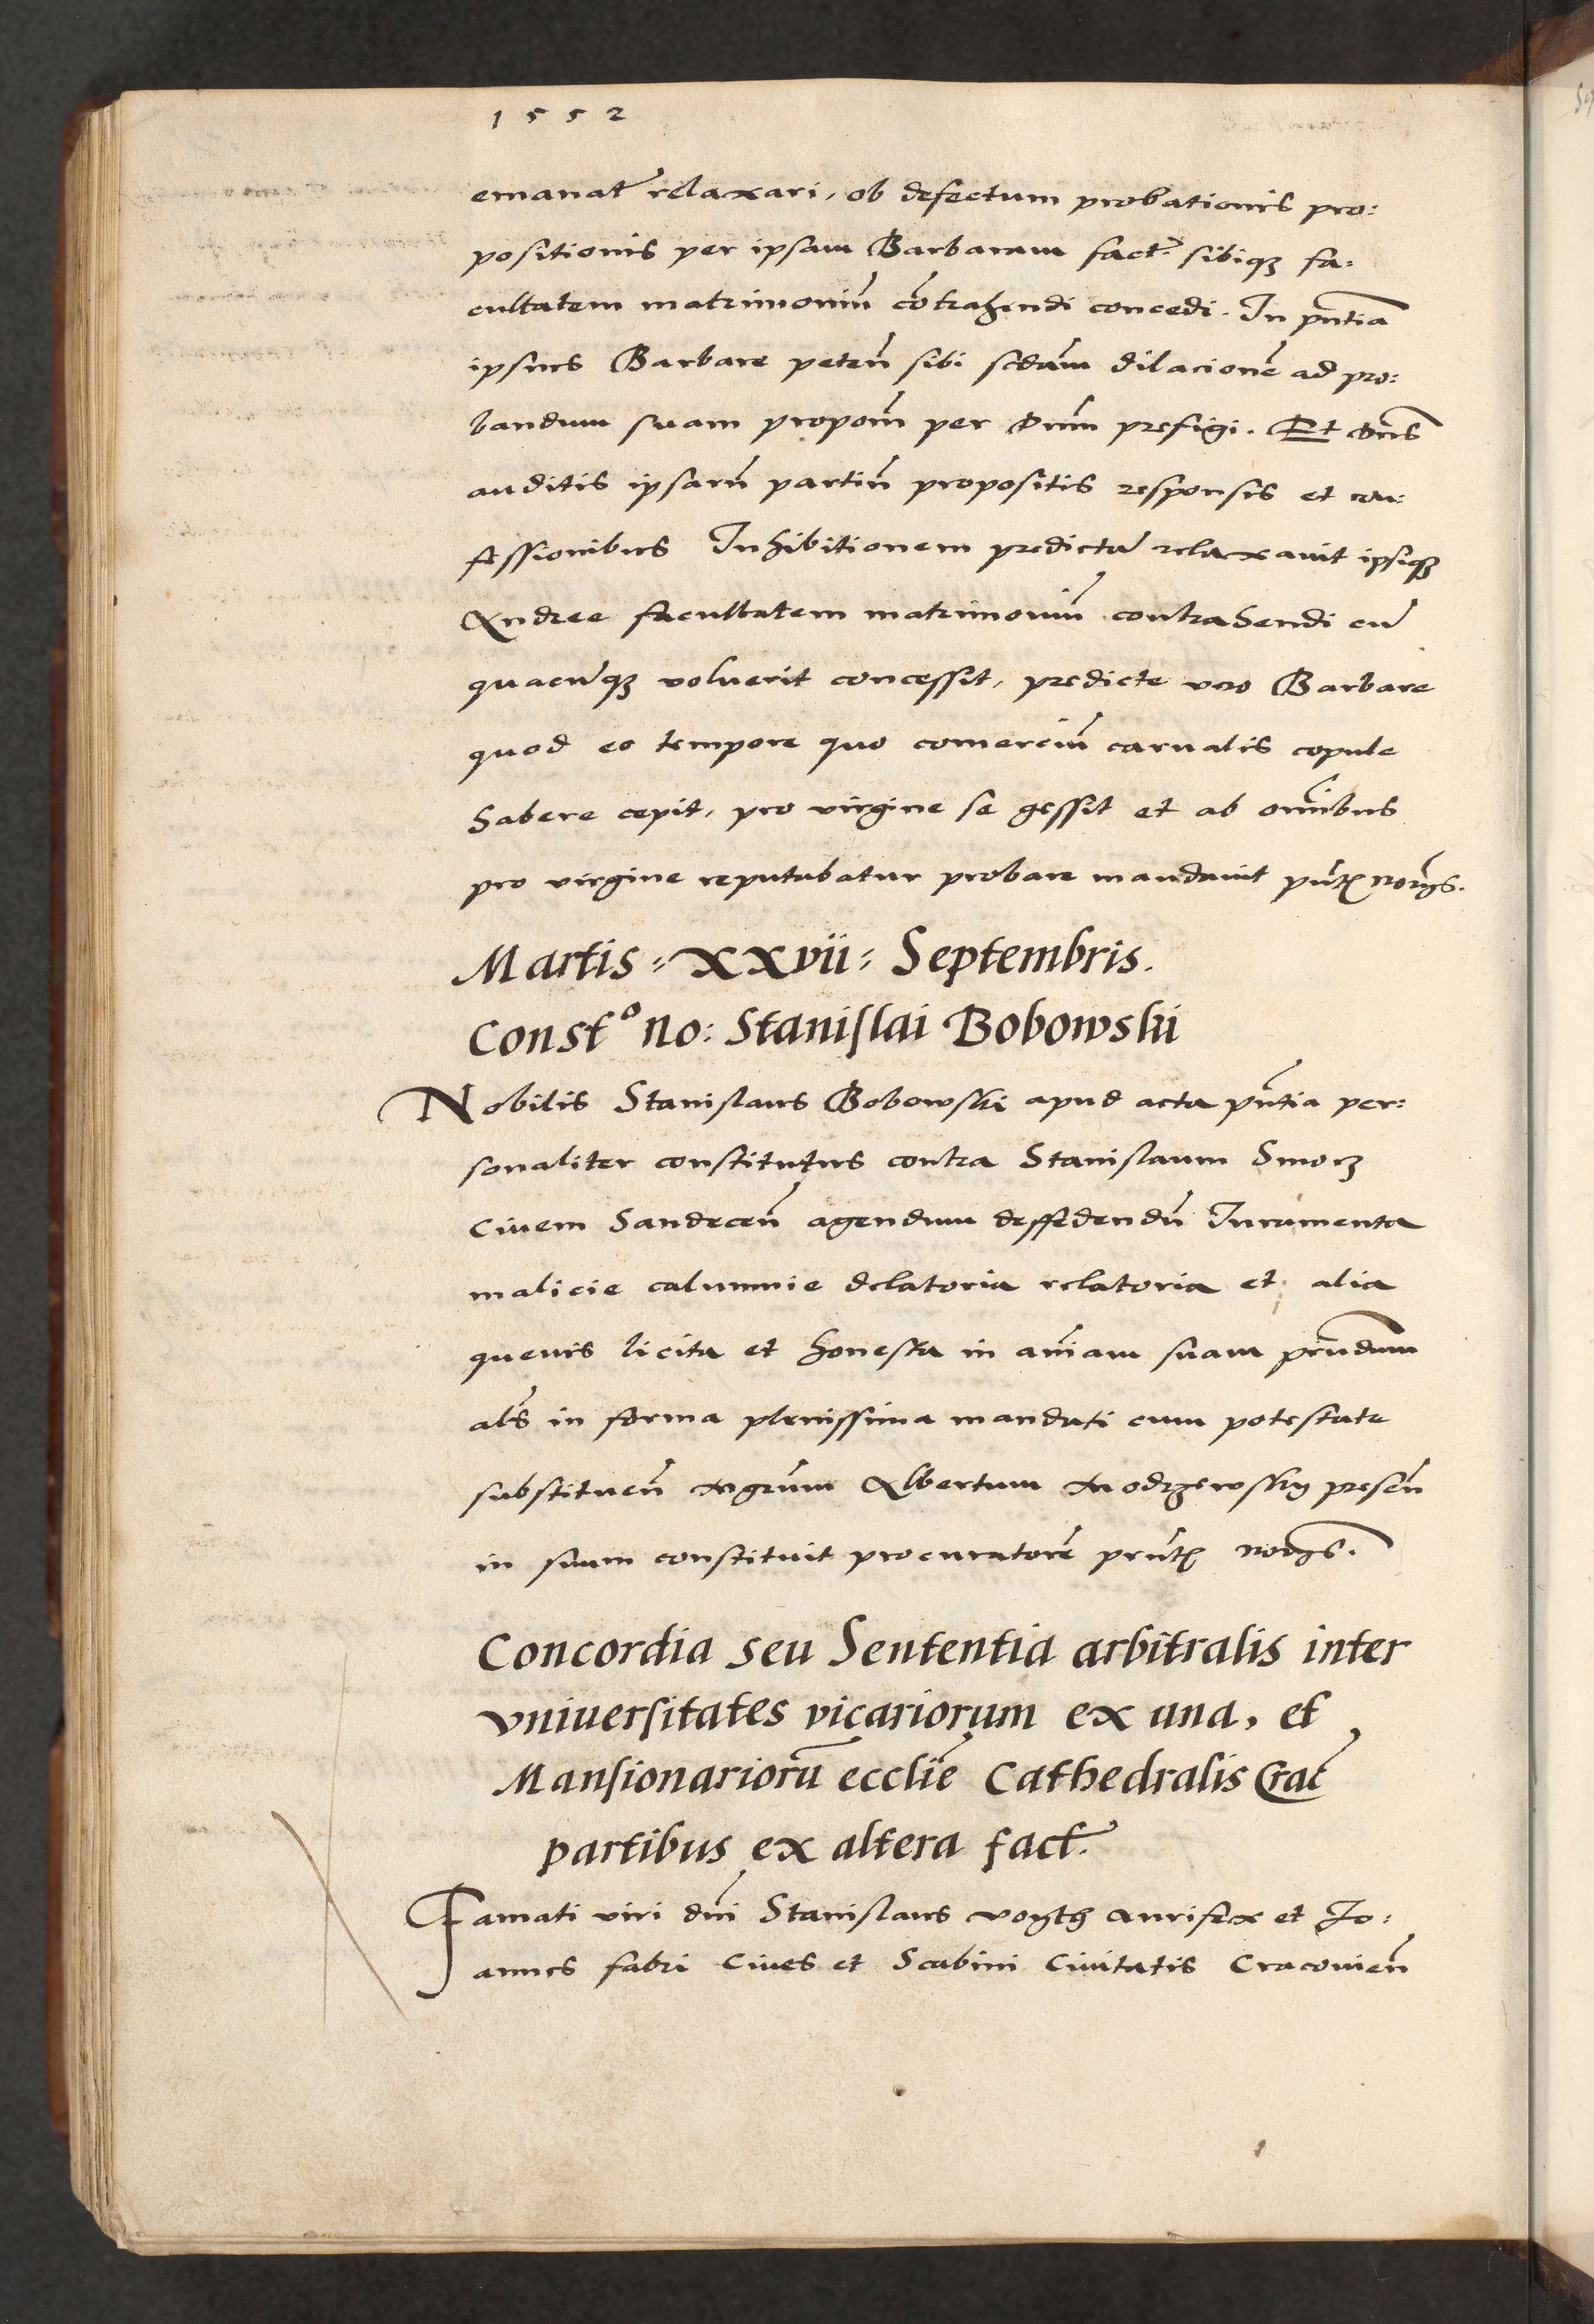 1552
emanat̃ relaxari, ob defectum probationis pro:
positionis per ipsam Barbaram fact̃ sibiqꝫ fa:
cultatem matrimoniũ cõtrahendi concedi. In pñtia
ipsius Barbare peteñ sibi scđam dilacionẽ ad pro:
bandum suam propoñ per Dnm̃ prefigi. Et Dns̃
auditis ipsarũ partiũ propositis responsis et con:
fessionibus Inhibitionem predictã relaxauit ipsiqꝫ
Andree facultatem matrimoniũ contrahendi cũ
quacũqꝫ voluerit concessit, predicte vero Barbare
quod eo tempore quo comerciũ carnalis copule
habere cepit, pro virgine se gessit et ab om̃ibus
pro virgine reputabatur probare mandauit pñt
Martis = XXvii = Septembris.
Constº no: Stanislai Bobowskii
Nobilis Stanislaus Bobowski apud acta pñtia per:
sonaliter constitutus contra Stanislaum Smorz
Ciuem Sandeceñ agendum deffedendũ Iuramenta
malicie calumnie delatoria relatoria et alia
queuis licita et honesta in aĩam suam prñdum
als̃ in forma plenissima mandati cum potestate
substitueñ Mgrũm Albertum Modrzewsky preseñ
in suum constituit procuratorẽ prñt
Concordia seu Sententia arbitralis inter
vniuersitates vicariorum ex una, et
Mansionariorũ eccliẽ Cathedralis Crac̃
partibus ex altera fact̃.
Famati viri dñi Stanislaus voyth Aurifex et Jo:
annes fabri Ciues et Scabini Ciuitatis Cracouieñ